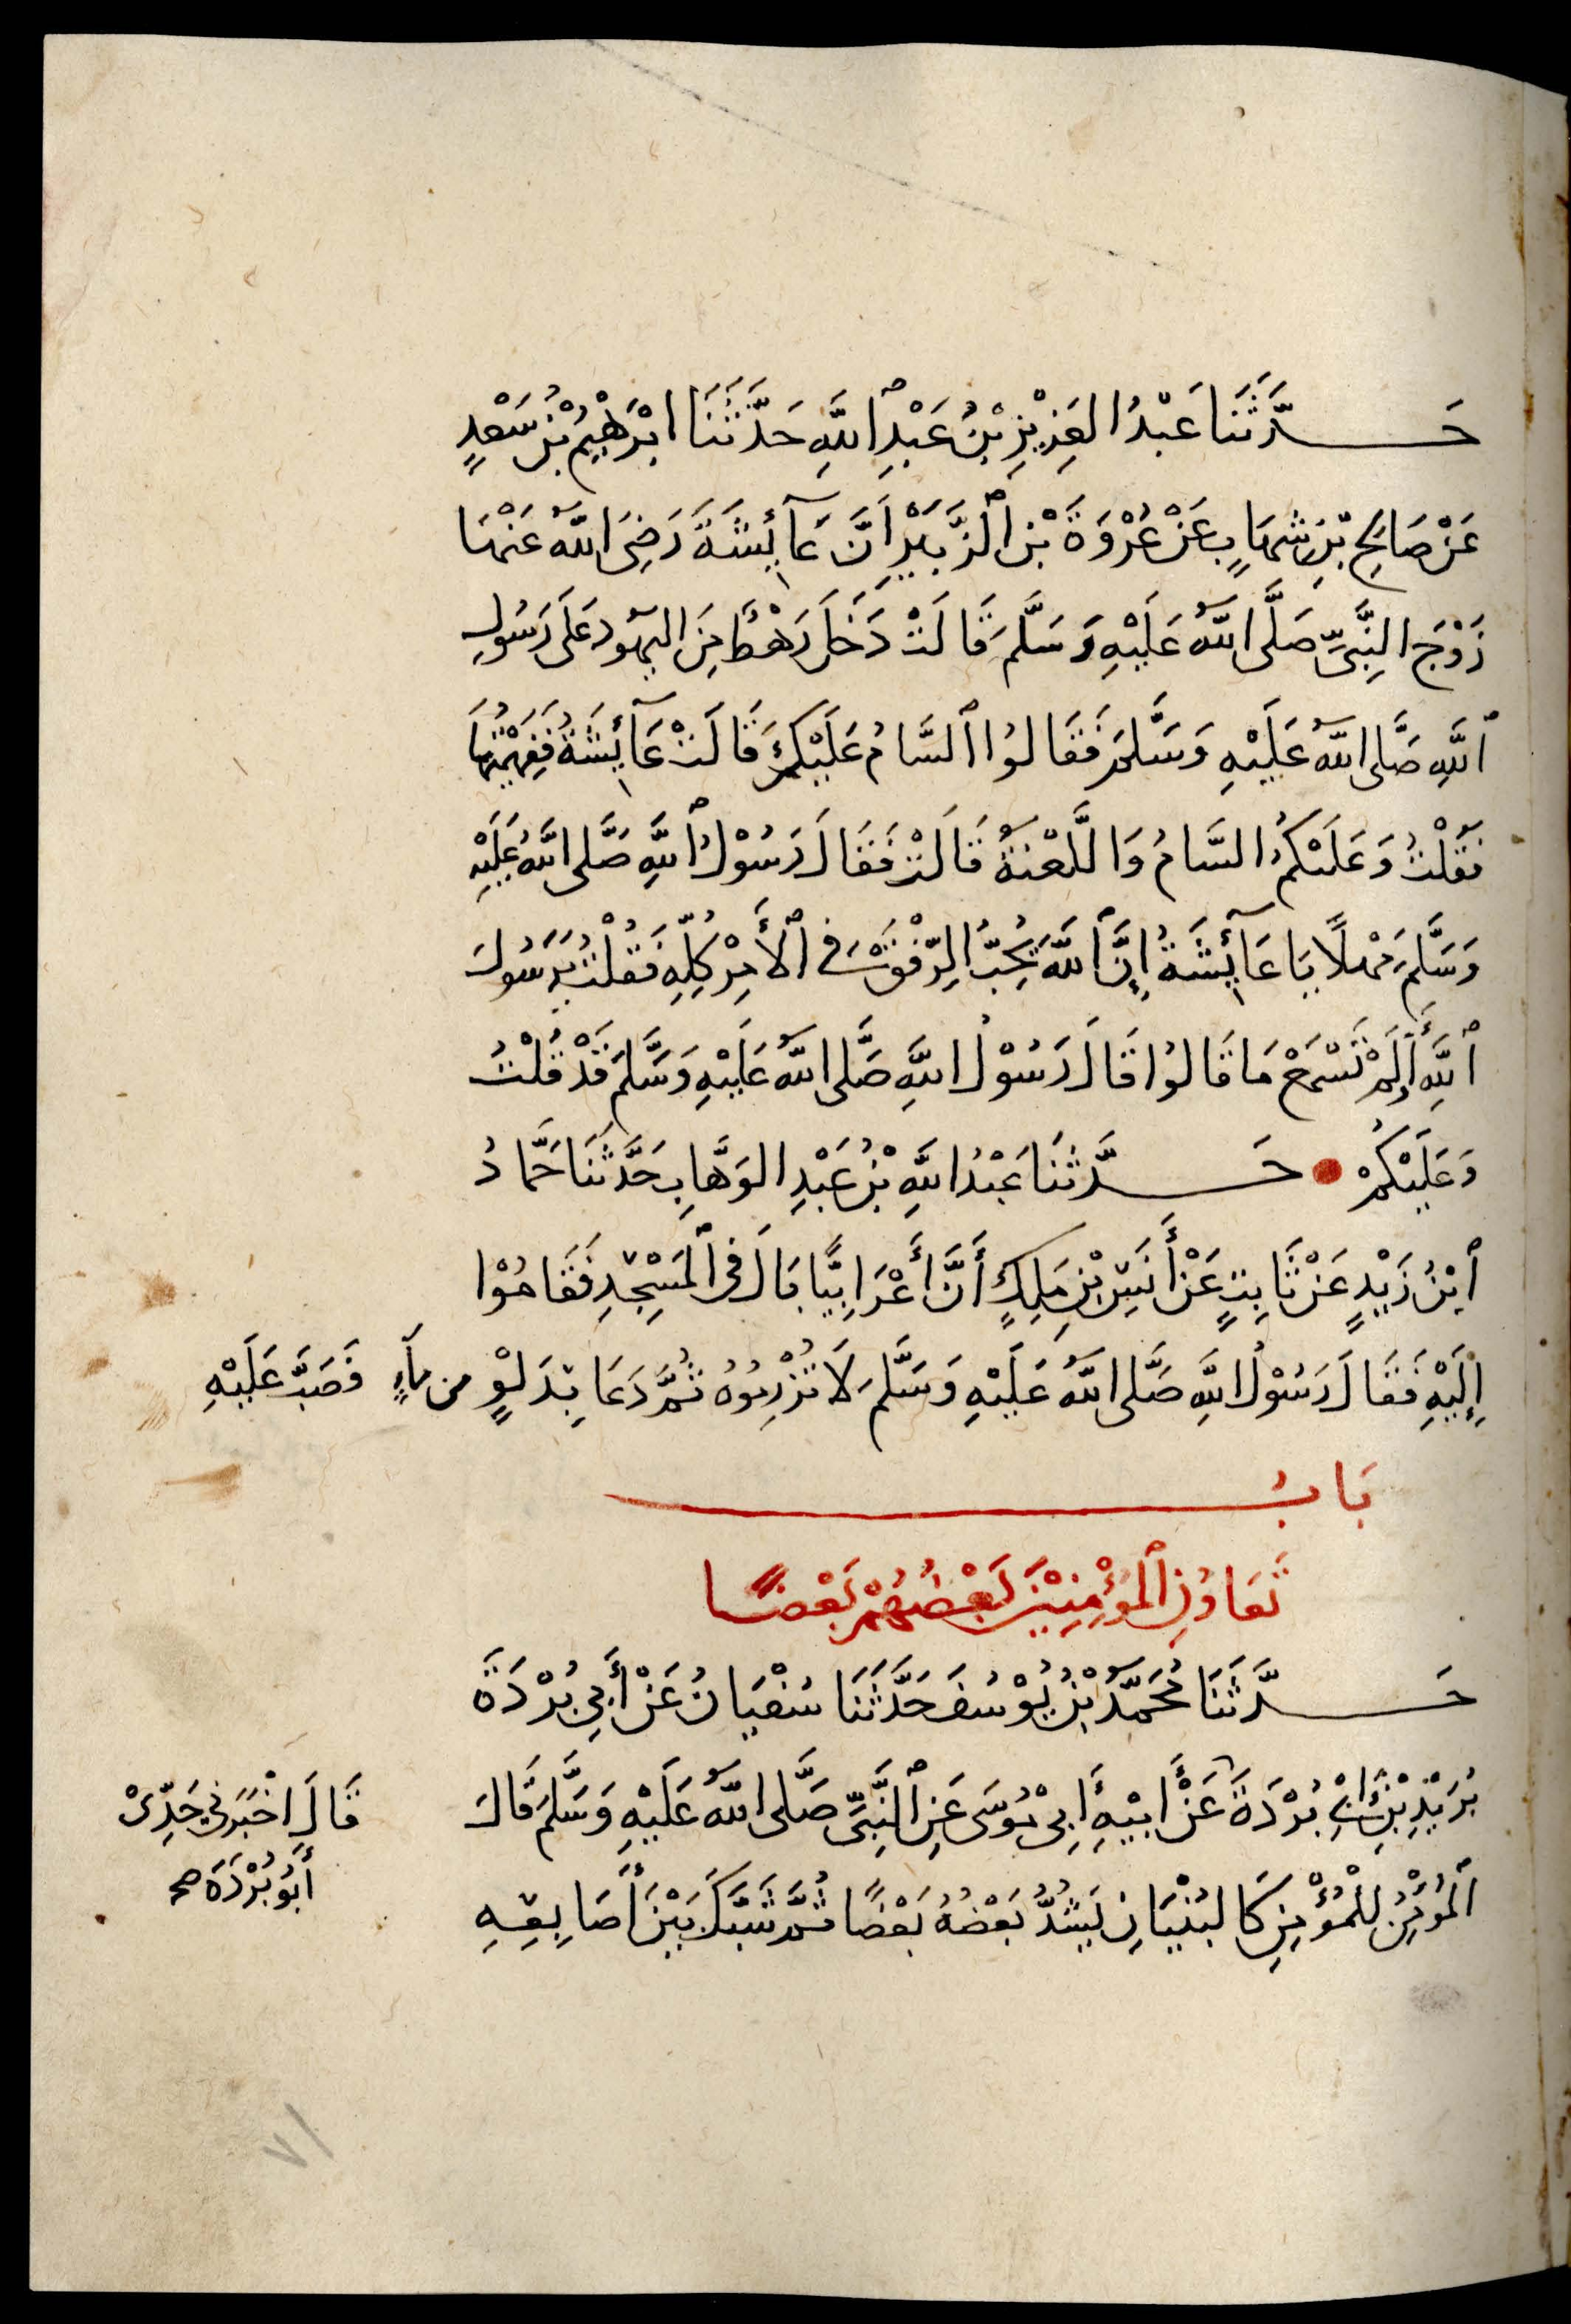 حَدَّثَنَا عَبْدُ العَزِيْزِ بْنُ عَبْدِ ٱللَّهِ حَدَّثَنَا ابْرَهِيْمُ بْنُ سَعْدٍ
عَنْ صَالِحٍ بْنِ شِهَابٍ عَنْ عُرْوَةَ بْنِ ٱلزُّبَيْرِ اَنَّ عَآئِشَةَ رَضِيَ اللَّهُ عَنْهَا
زَوْجَ النَّبِيِّ صَلَّى اللَّهُ عَلَيْهِ وَسَلَّمَ قَالَتْ دَخَلَ رَهْطٌ مِنَ اليَهُودِ عَلَى رَسُولِ
ٱللَّهِ صَلَّى اللَّهُ عَلَيْهِ وَسَلَّمَ فَقَالُوا ٱلسَّامُ عَلَيْكُمْ قَالَتْ عَآئِشَةُ فَفَهِمْتُهَا
فَقُلْتُ وَعَلَيْكُمُ السَّامُ وَاللَّعْنَةُ قَالَتْ فَقَالَ رَسُوْلُ ٱللَّهِ صَلَّى اللَّهُ عَلَيْهِ
وَسَلَّمَ مَهْلًا يَا عَآئِشَةُ إِنَّ ٱللَّهَ يُحِبُّ الرِّفْقَ فِي ٱلأَمْرِ كُلِّهِ فَقُلْتُ يَرَسُولَ
ٱللَّهِ أَوَلَمْ تَسْمَعْ مَا قَالُوا قَالَ رَسُوْلُ اللَّهِ صَلَّى اللَّهُ عَلَيْهِ وَسَلَّمَ قَدْ قُلْتُ
وَعَلَيْكُمْ • حَدَّثَنَا عَبْدُ اللَّهِ بْنُ عَبْدِ الوَهَّابِ حَدَّثَنَا حَمَّادُ
ٱبْنُ زَيْدٍ عَنْ ثَابِتٍ عَنْ أَنَسِ بْنِ مَلِكٍ أَنَّ أَعْرَابِيًّا بَالَ فِي ٱلمَسْجِدِ فَقَامُوْا
إِلَيْهِ فَقَالَ رَسُوْلُ اللَّهِ صَلَّى اللَّهُ عَلَيْهِ وَسَلَّمَ لَا تُزْرِمُوهُ ثُمَّ دَعَا بِدَلْوٍ من مآءٍ فَصَبَّ عَلَيْهِ
بَابُ
تَعَاوُنِ ٱلمُؤْمِنِيْنَ بَعْضُهُمْ بَعْضًا
حَدَّثَنَا مُحَمَّدُ بْنُ يُوْسُفَ حَدَّثَنَا سُفْيَانُ عَنْ أَبِي بُرْدَةَ
بُرَيْدِ بْنِ أَبِي بُرْدَةَ عَنْ أَبِيْهِ أَبِيْ مُوْسَى عَنِ ٱلنَّبِيِّ صَلَّى اللَّهُ عَلَيْهِ وَسَلَّمَ قَالَ
قَالَ اخْبَرَنِي جَدِّىْ
أَبُو بُرْدَةَ صح
ٱلمُؤْمِنُ لِلْمُؤْمِنِ كَالبُنْيَانِ يَشُدُّ بَعْضُهُ بَعْضًا ثُمَّ شَبَّكَ بَيْنَ أَصَابِعِهِ
٧١